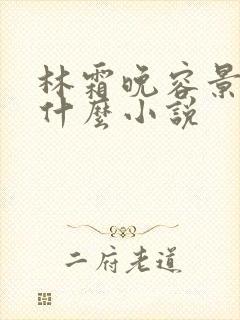 林霜晚容景
什麼小說
二府老道